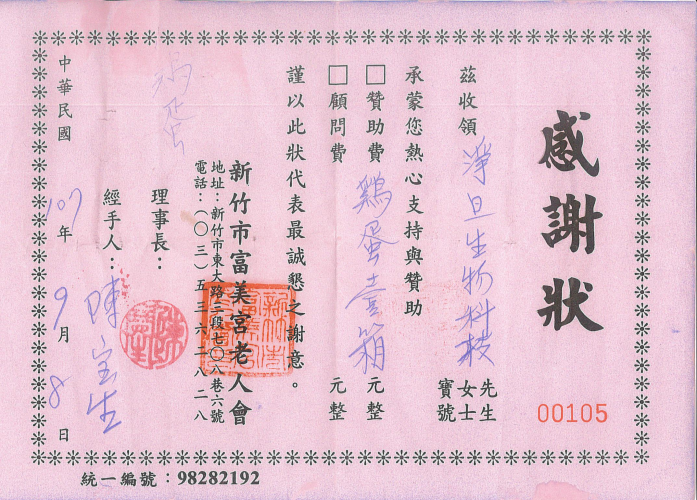 感謝狀
00105
茲收領 淨旦生物科技 先生 女士 寶號
承蒙您熱心支持與贊助
□贊助費 元整
雞蛋壹箱
□顧問費 元整
謹以此狀代表最誠懇之謝意。
新竹市富美宮老人會
地址：新竹市東大路二段七〇八巷六號
電話：（〇三）五二六二八二八
理事長：
經手人：陳宝生
中華民國 107 年 9 月 8 日
統一編號：98282192